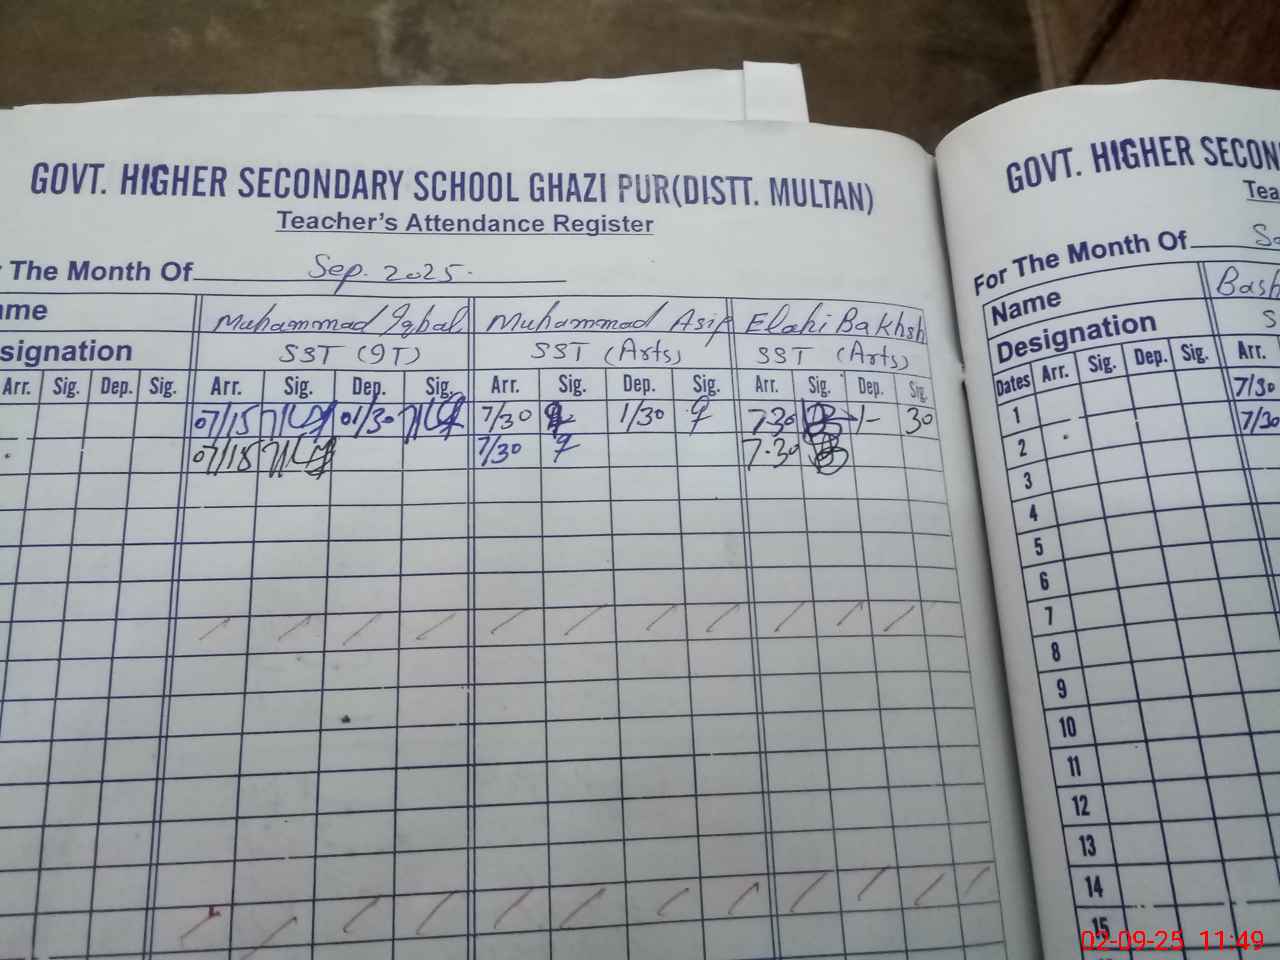 GOVT. HIGHER SECONDARY SCHOOL GHAZI PUR(DISTT. MULTAN)
Teacher's Attendance Register
The Month Of Sep. 2025.
ame Muhammad Iqbal Muhammad Asif Elahi Bakhsh
signation SST (IT) SST (Arts) SST (Arts)
Arr. Sig. Dep. Sig. Arr. Sig. Dep. Sig. Arr. Sig. Dep. Sig. Arr. Sig. Dep. Sig.
07/15 01/30 7/30 1/30 7.30 1- 30
07/15 7/30 7.30
GOVT. HIGHER SECON
Tea
For The Month Of
Name Bash
Designation S
Dates Arr. Sig. Dep. Sig. Arr.
1 7/30
2 7/30
3
4
5
6
7
8
9
10
11
12
13
14
15
02-09-25 11:49